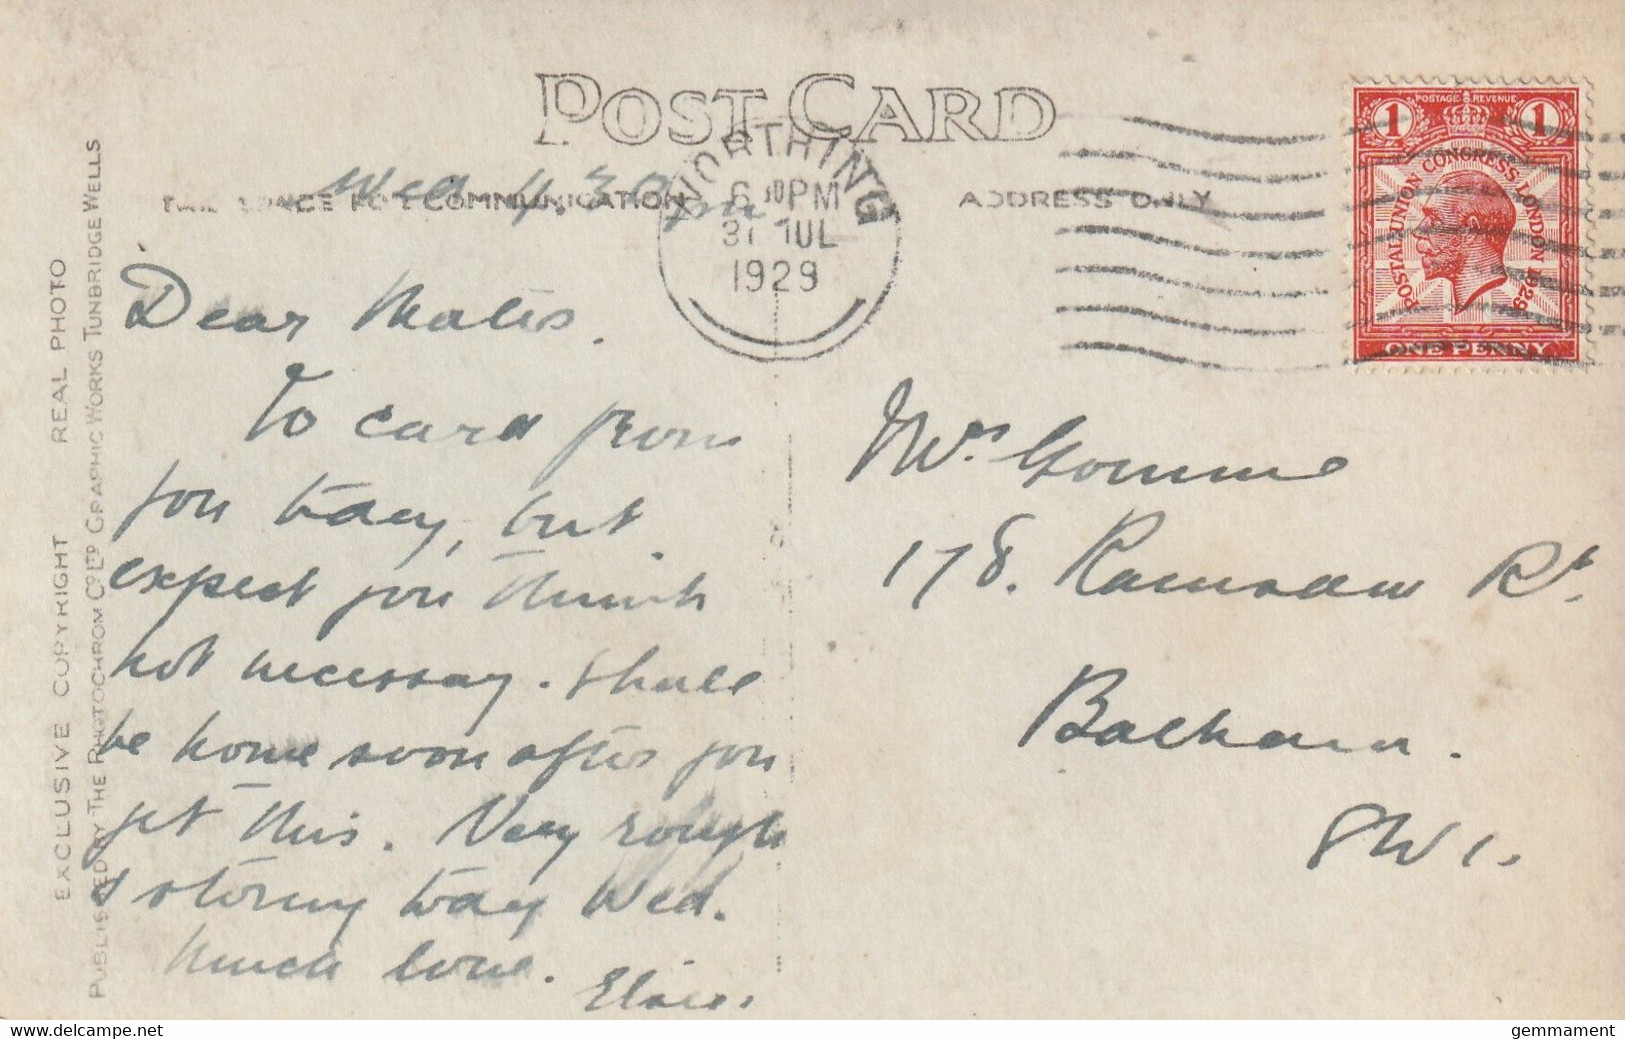 POST CARD
Wed 4.30 pm
THE SPACE FOR COMMUNICATION
ADDRESS ONLY
WORTHING
6 00PM
31 JUL
1929
1 POSTAGE REVENUE 1
POSTAL UNION CONGRESS LONDON 1929
ONE PENNY
EXCLUSIVE COPYRIGHT REAL PHOTO
PUBLISHED BY THE PHOTOCHROM CO LTD GRAPHIC WORKS TUNBRIDGE WELLS
Dear
To card from
you today, but
expect you think
not necessary. Shall
be home soon after you
get this. Very rough
& stormy today Wed.
Much love.
Mrs Gomme
178. Ramsden Rd.
Balham.
SW1.
gemmament